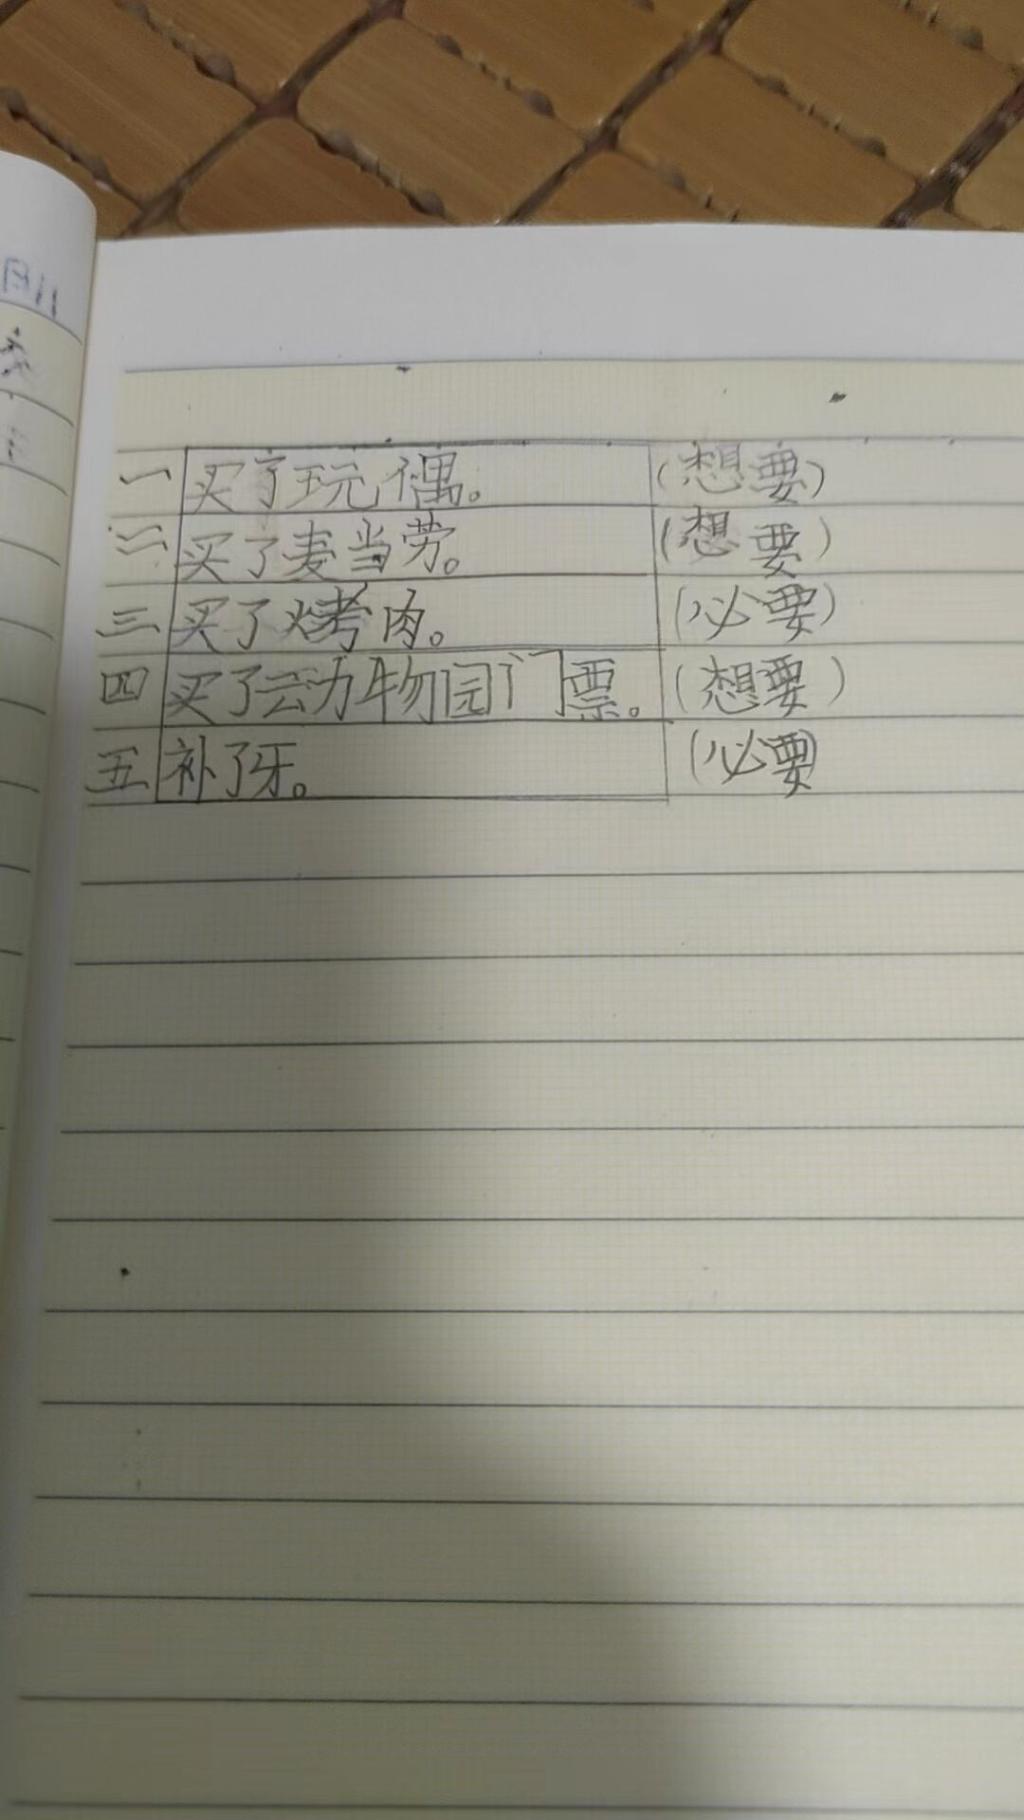 一 买了玩偶。 (想要)
二 买了麦当劳。 (想要)
三 买了烤肉。 (必要)
四 买了动物园门票。 (想要)
五 补了牙。 (必要)